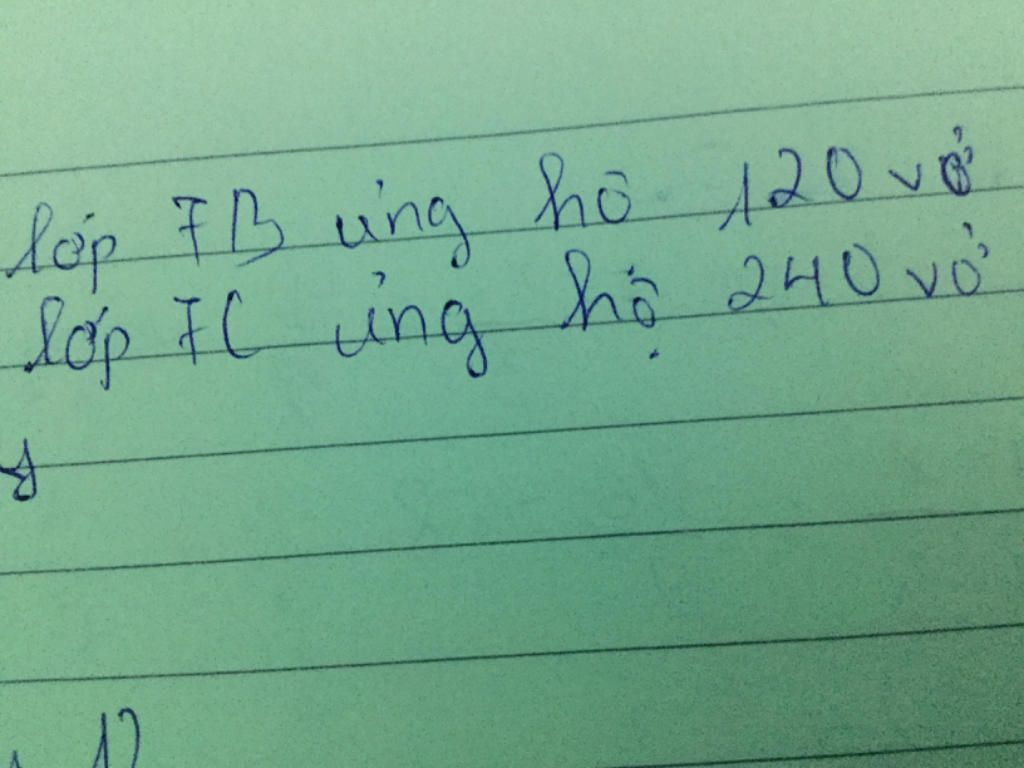 lớp 7B ủng hộ 120 vở
lớp 7C ủng hộ 240 vở